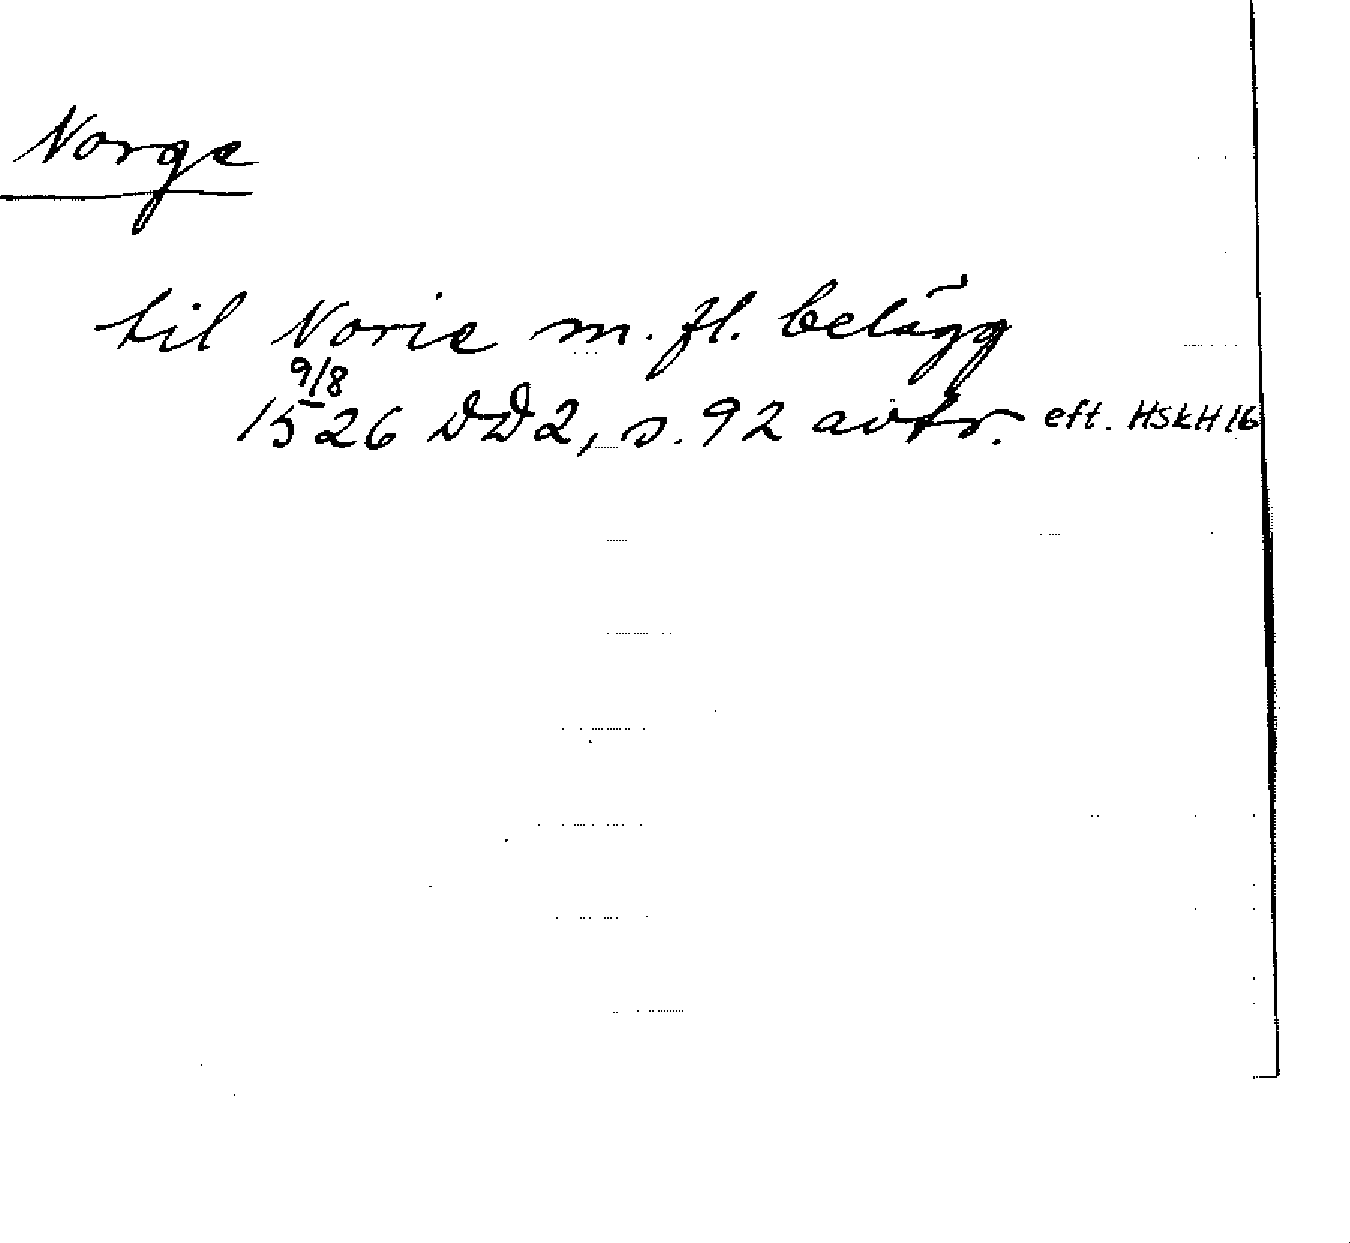 Norge
til Norie m. fl. belägg
9/8
1526 DD2, s. 92 avskr. eft. HSKH 16